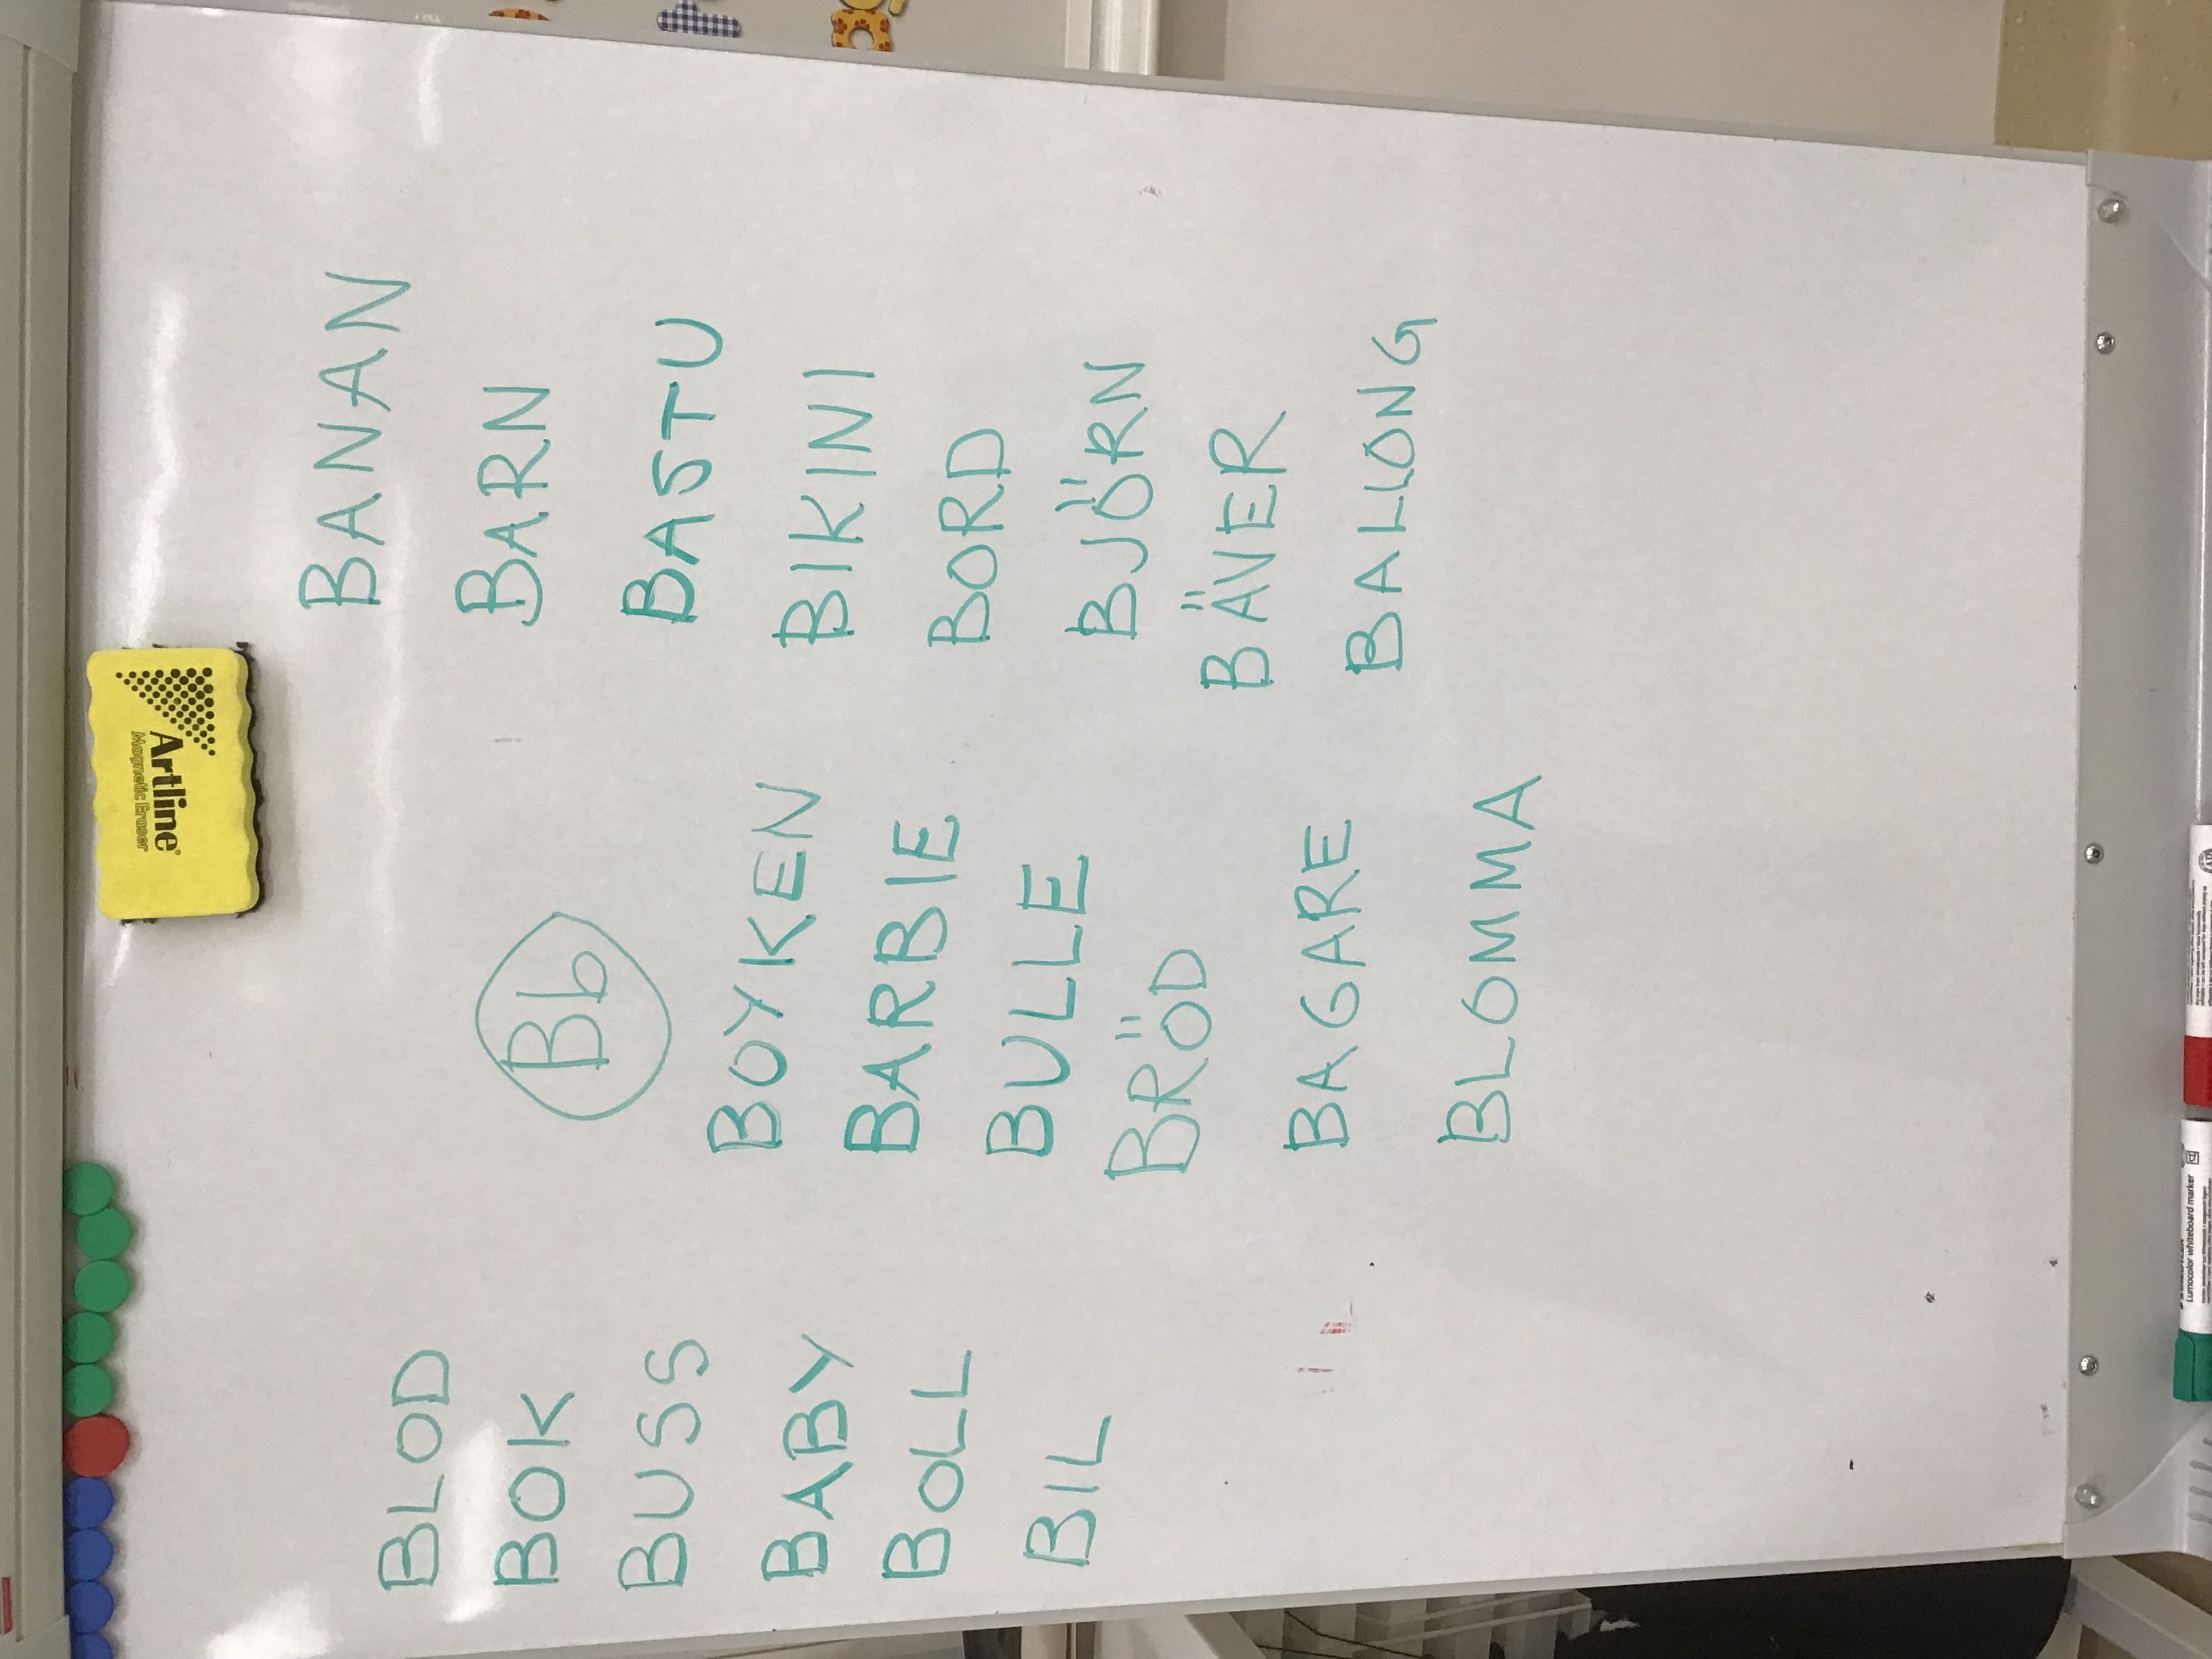 Bb
BLOD
BOK
BUSS
BABY
BOLL
BIL
BOYKEN
BARBIE
BULLE
BRÖD
BAGARE
BLOMMA
BANAN
BARN
BASTU
BIKINI
BORD
BJÖRN
BÄVER
BALLONG
Artline
Magnetic Eraser
Lumocolor whiteboard marker